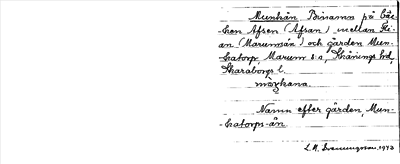 Munkån. Binamn på bäc-
ken Afsen (Afsan) mellan Fli-
an (Marumsån) och gården Mun-
katorp, Marum s:n, Skånings hd,
Skaraborgs l.
Namn efter gården, Mun-
katorps-ån.
L. M. Svenungsson 1943